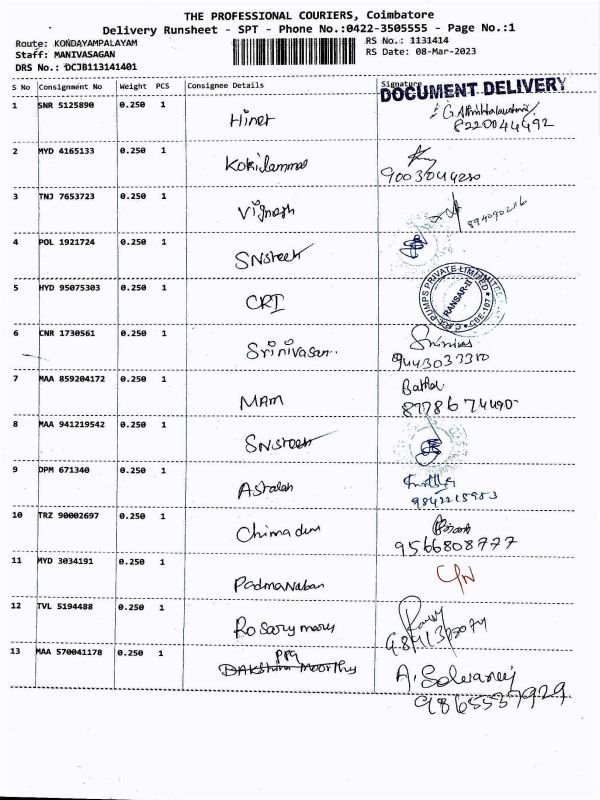 THE PROFESSIONAL COURIERS, Coimbatore
Delivery Runsheet - SPT - Phone No.:0422-3505555 - Page No.:1
Route: KONDAYAMPALAYAM
RS No.: 1131414
Staff: MANIVASAGAN
RS Date: 08-Mar-2023
DRS No.: DCJB113141401
S No Consignment No Weight PCS Consignee Details Signature
DOCUMENT DELIVERY
1 SNR 5125890 0.250 1 Hinet
8220044492
2 MYD 4165133 0.250 1 Kokilammal
9003044280
3 TNJ 7653723 0.250 1 Vignesh
4 POL 1921724 0.250 1 SNSteel
5 HYD 95075303 0.250 1 CRI
C.R.I. PUMPS PRIVATE LIMITED
RANSAR-II
CBE-107
6 CNR 1730561 0.250 1 Srinivasan Srinivas
9443033310
7 MAA 859204172 0.250 1 MAM
8778674490
8 MAA 941219542 0.250 1 SNSteel
9 DPM 671340 0.250 1
9842215983
10 TRZ 90002697 0.250 1
9566808777
11 MYD 3034191 0.250 1 Padmanaban C/N
12 TVL 5194488 0.250 1 Rosary mary
13 MAA 570041178 0.250 1 PPG
DAKSHINA MOORTHY
9865537929